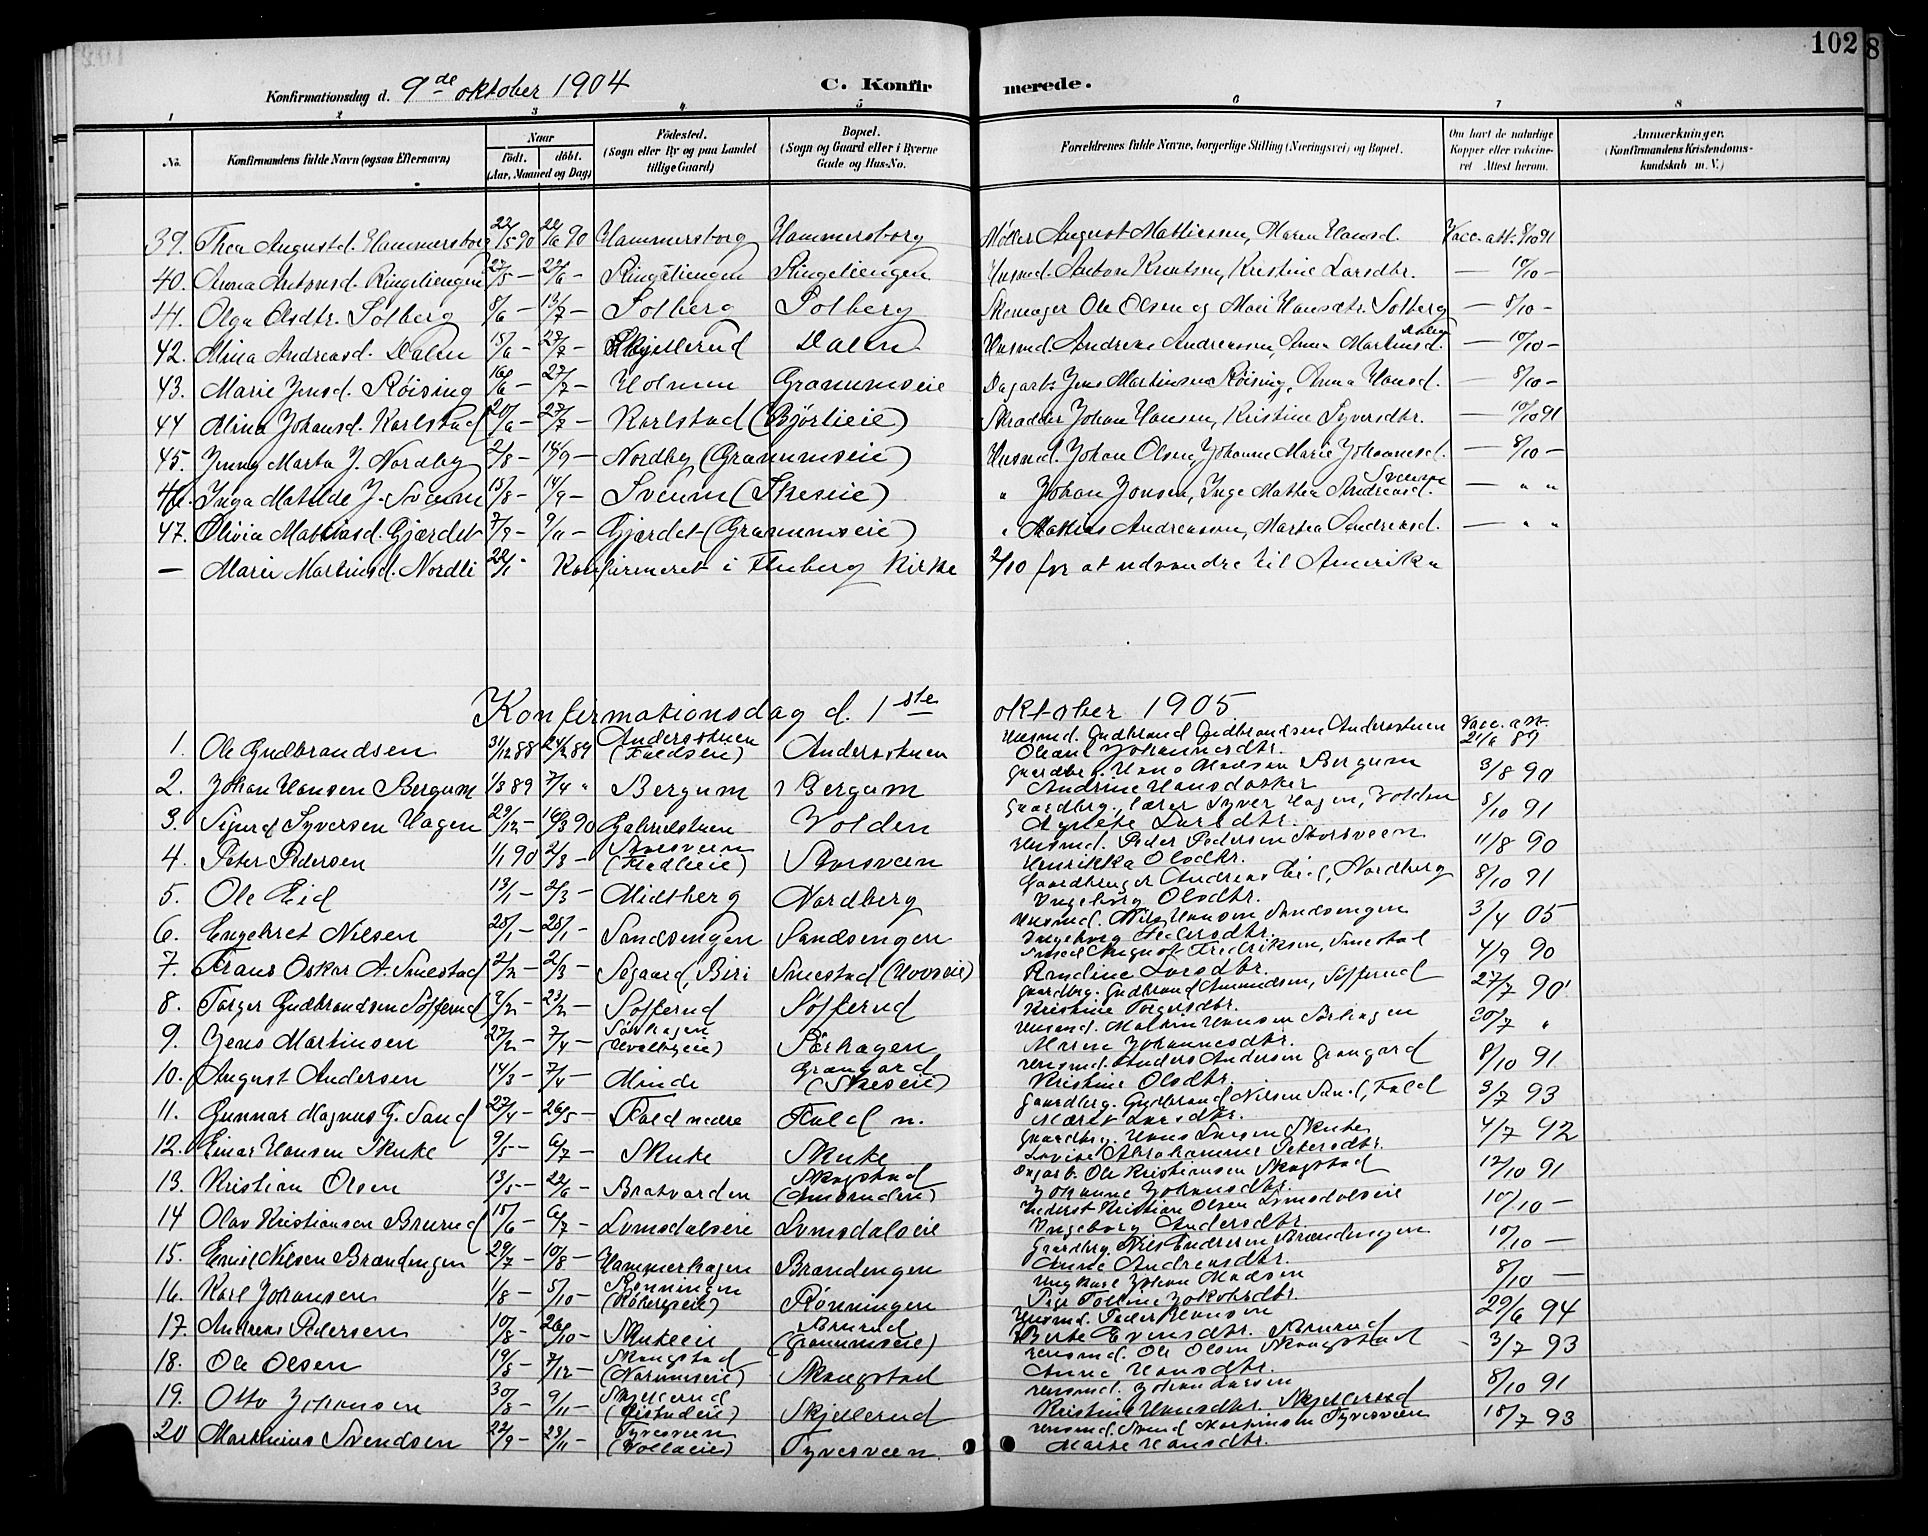 102
Konfirmationsdag d. 9de oktober 1904 C. Konfirmerede.
1 2 3 4 5 6 7 8
No. Konfirmandens fulde Navn (ogsaa Efternavn) Naar født. døbt. (Aar, Maaned og Dag) Fødested. (Sogn eller By og paa Landet tillige Gaard) Bopæl. (Sogn og Gaard eller i Byerne Gade og Hus-No. Forældrenes fulde Navne, borgerlige Stilling (Næringsvei) og Bopæl. Om havt de naturlige Kopper eller vakcineret Attest herom. Anmærkninger. (Konfirmandens Kristendomskundskab m. V.)
39. Thea Augustd. Hammersborg 22/5 90 22/6 90 Hammersborg Hammersborg Møller August Mathiessen, Maren Hansd. Vacc. att. 8/10 91
40. Anna Antonsd. Ringeliengen 27/5 — 22/6 — Ringeliengen Ringeliengen Husmd. Anton Knutsen, Kristine Larsdtr. — 10/10 —
41. Olga Olsdtr. Solberg 8/6 — 13/7 — Solberg Solberg Skomager Ole Olsen og Mari Hansdtr. Solberg — 8/10 —
42. Alina Andreasd. Dalen 15/6 — 27/7 — Skjellerud Dalen Husmd. Andreas Andreassen, Anna Martinsd. Dalen — 10/10 —
43. Marie Jensd. Røising 16/6 — 27/7 — Holmen Granumseie Dagarb. Jens Martinsen Røising, Anna Hansd. — 8/10 —
44 Alina Johansd. Karlstad 20/6 — 27/7 — Karlstad (Bjørlieie) Skrædder Johan Hansen, Kristine Syversdtr. — 10/10 91
45. Jenny Marta J. Nordby 2/8 — 14/9 — Nordby (Granumseie) Husmd. Johan Olsen, Johanne Marie Johannesd. — 8/10 —
46. Inga Matilde J. Sveum 15/8 — 14/9 — Sveum (Skeseie) " Johan Jonsen, Inge Mathea Andreasd. Sveum — " "
47. Olivia Mathiasd. Gjærdet 7/9 — 9/11 — Gjærdet (Granumseie) " Mathias Andreassen, Marthea Andreasd. — " "
— Marie Martinsd. Nordli 22/1 Konfirmeret i Fluberg Kirke 2/10 for at udvandre til Amerika
Konfirmationsdag d. 1ste oktober 1905
1. Ole Gudbrandsen 31/12 88 24/2 89 Andersstuen (Faldseie) Andersstuen Husmd. Gudbrand Gudbrandsen Andersstuen Oleane Johannesdtr. Vacc. att. 21/6 89
2. Johan Hansen Bergum 1/3 89 7/4 " Bergum Bergum Gaardbr. Hans Madsen Bergum Andrine Hansdatter 3/8 90
3. Sigurd Syversen Hagen 29/12 — 16/3 90 Gabrielstuen Volden Gaardbrg. lærer Syver Hagen, Volden Agnethe Larsdtr. 8/10 91
4. Peter Pedersen 1/1 90 2/3 — Storsveen (Fladlieie) Storsveen Husmd. Peder Pedersen Storsveen Henrikka Olsdtr. 11/8 90
5. Ole Eid 13/1 — 2/3 — Midtberg Nordberg Gaardbruger Andreas Eid, Nordberg Ingeborg Olsdtr. 8/10 91
6. Engebret Nilsen 28/1 — 28/1 — Sandsengen Sandsengen Husmd. Nils Hansen Sandsengen Ingeborg Pedersdtr. 3/4 05
7. Frans Oskar A. Smestad 2/2 — 2/3 — Segaard, Biri Smestad (Hovseie) Smed August Fredriksen, Smestad Randine Larsdtr. 4/9 90
8. Torger Gudbrandsen Søfferud 9/2 — 23/2 — Søfferud Søfferud Gaardbrg. Gudbrand Amundsen, Søfferud Kristine Torgersdtr. 27/7 90
9. Jens Martinsen 27/2 — 7/4 — Sørhagen (Hvalbyeie) Sørhagen Husmd. Martin Hansen Sørhagen Maren Johannesdtr. 30/7 "
10. August Andersen 14/3 — 7/4 — Minde Grangard (Skeseie) Husmd. Anders Andersen Grangard Kristine Olsdtr. 8/10 91
11. Gunnar Magnus G. Sand 27/4 — 26/5 — Fald nedre Fald n. Gaardbrg. Gudbrand Nilsen Sand, Fald Marit Larsdtr. 3/7 93
12. Einar Hansen Skute 9/5 — 6/7 — Skute Skute Gaardbrg. Hans Larsen Skute Lovise Abrahamine Petersdtr. 4/7 92
13. Kristian Olsen 13/5 — 22/6 — Bratvarden Skogstad (Amsrudeie) Dagarb. Ole Kristiansen Skogstad Johanne Johansdtr. 12/10 91
14 Olav Kristiansen Brurud 15/6 — 6/7 — Lomsdalseie Lomsdalseie Inderst Kristian Olsen Lomsdalseie Ingeborg Andersdtr. 10/10 —
15. Emil Nilsen Brændengen 29/7 — 10/8 — Hammerhagen Brændengen Gaardbrg. Nils Endresen Brændengen Anne Andreasdtr. 10/10 —
16. Karl Johansen 1/8 — 5/10 — Rønningen (Kobergseie) Rønningen Ungkarl Johan Madsen Pige Toline Jakobsdtr. 8/10 —
17. Andreas Pedersen 10/8 — 26/10 — Skuteeie Brurud (Granumseie) Husmd. Peder Hansen Berte Evensdtr. Brurud 29/6 94
18. Ole Olsen 19/8 — 7/12 — Skogstad (Narumseie) Skogstad Husmd. Ole Olsen Skogstad Anne Hansdtr. 3/7 93
19. Otto Johansen 30/8 — 9/11 — Skjellerud Skjellerud Husmd. Johan Larsen Kristine Hansdtr. Skjellerud 8/10 91
20 Marthinus Svendsen 22/9 — 23/11 — Tyvesveen (Vollaeie) Tyvesveen. Husmd. Svend Martinsen Tyvesveen Marte Hansdtr. 18/7 93